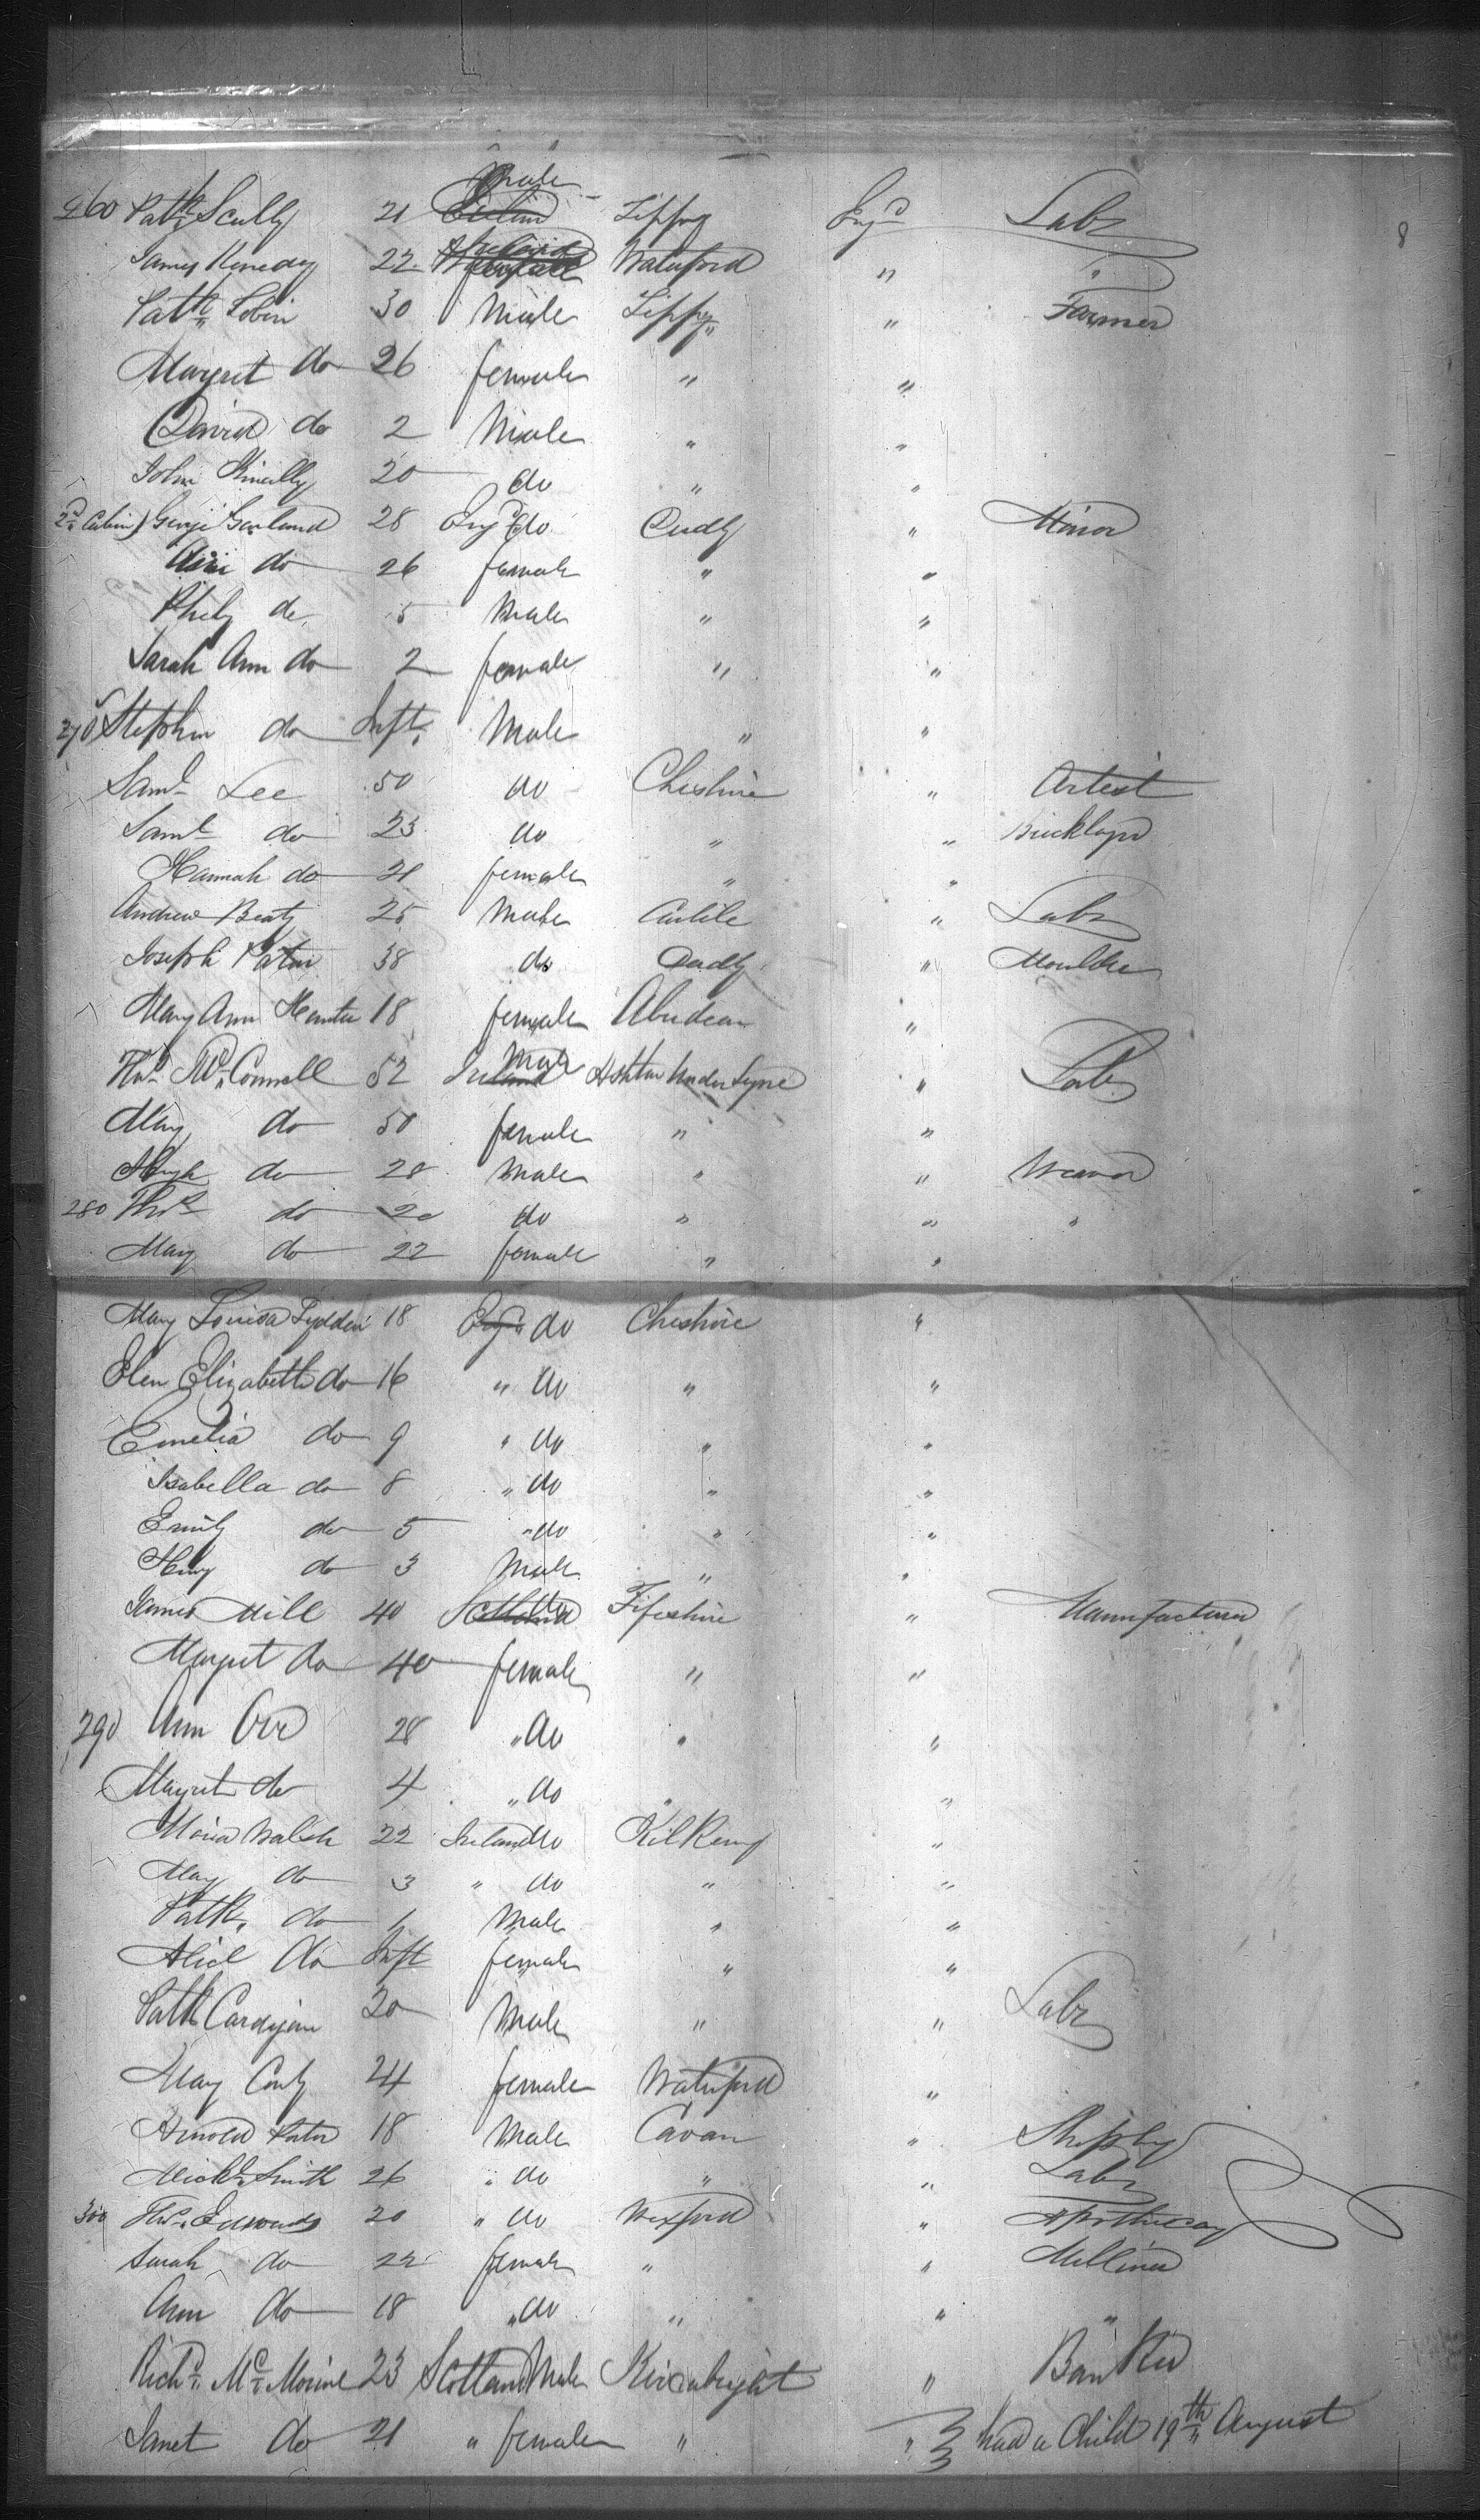 260 Patk Scully 21 Male Tippy Engd Labr
8
James Kenedy 22 Waterford " "
Patk Tobin 30 Male Tippy " Farmer
Margret do 26 female " "
David do 2 Male " "
John Kinelly 20 do " "
2nd Cabin) George Garland 28 Engd do Dudly " Minor
Ann do 26 female " "
Phily do 5 Male " "
Sarah Ann do 2 female " "
270 Stephen do Inft Male " "
Saml Lee 50 do Cheshire " Artest
Saml do 23 do " " Bricklayr
Hannah do 21 female " "
Andrew Beaty 25 Male Carlile " Labr
Joseph 38 do Dudly " Moulder
Mary Ann Hunter 18 female Aberdean "
Thos McConnell 52 Ireland Male Ashton Under Lyne " Labr
Mary do 50 female " "
Hugh do 28 Male " " Weaver
280 Thos do 20 do " " "
Mary do 22 female " "
Mary Louisa 18 Engd do Cheshire "
Elen Elizabeth do 16 " do " "
Emelia do 9 " do " "
Isabella do 8 " do " "
Emily do 5 " do " "
Henry do 3 Male " "
James Mill 40 Scotland Fifeshire " Manufacturer
Margret do 40 female " "
290 Ann Orr 28 " do " "
Margret do 4 " do " "
Maria Walsh 22 Ireland do Kilkenny "
Mary do 3 " do " "
Patk do Male " "
Alice do Inft female " "
Patk 20 Male " " Labr
Mary 24 female Waterford "
Arnold 18 Male Cavan "
Michl Smith 26 " do " " Labr
300 Thos Edwards 20 " do Wexford " Apothecary
Sarah do 22 female " " Milliner
Ann do 18 " do " " "
Richd McMorine 23 Scotland Male Kircubright " Banker
Janet do 21 " female " " had a Child 19th August